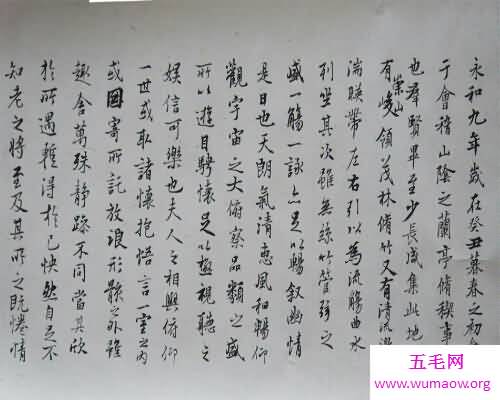 永和九年歲在癸丑暮春之初
于會稽山陰之蘭亭脩稧事
也羣賢畢至少長咸集此地
有崇山峻領茂林脩竹又有清流激
湍暎帶左右引以為流觴曲水
列坐其次雖無絲竹管弦之
盛一觴一詠亦足以暢叙幽情
是日也天朗氣清惠風和暢仰
觀宇宙之大俯察品類之盛
所以遊目騁懷足以極視聽之
娛信可樂也夫人之相與俯仰
一世或取諸懷抱悟言一室之內
或因寄所託放浪形骸之外雖
趣舍萬殊靜躁不同當其欣
於所遇暫得於己快然自足不
知老之將至及其所之既惓情
五毛网
www.wumaow.org